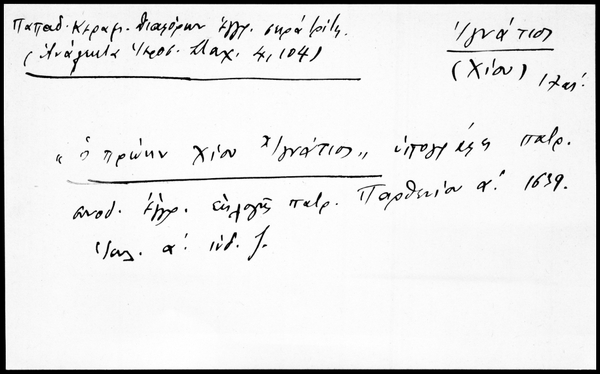 Παπαδ. Κεραμ. διαφόρων ἐγγρ.
(Ἀνάλεκτα Ἱεροσ. Σταχ. 4, 104)
Ἰγνάτιος
(Χίου)
„ὁ πρώην Χίου Ἰγνάτιος„ ὑπογράφει πατρ.
συνοδ. ἐγγρ. ἐκλογῆς πατρ. Παρθενίου α΄ 1639.
Ἰουλ. α΄. ἰνδ. ζ.